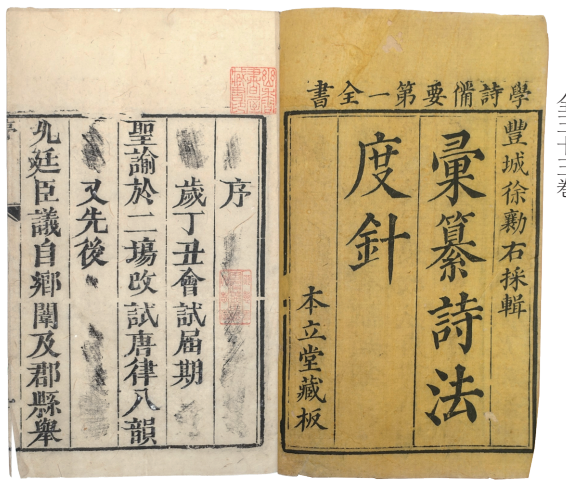 全三十三卷
學詩備要第一全書
豐城徐勷右採輯
彙纂詩法
度針
本立堂藏板
序
歲丁丑會試届期
聖諭於二塲改試唐律八韻
又先後
允廷臣議自鄉闈及郡縣舉